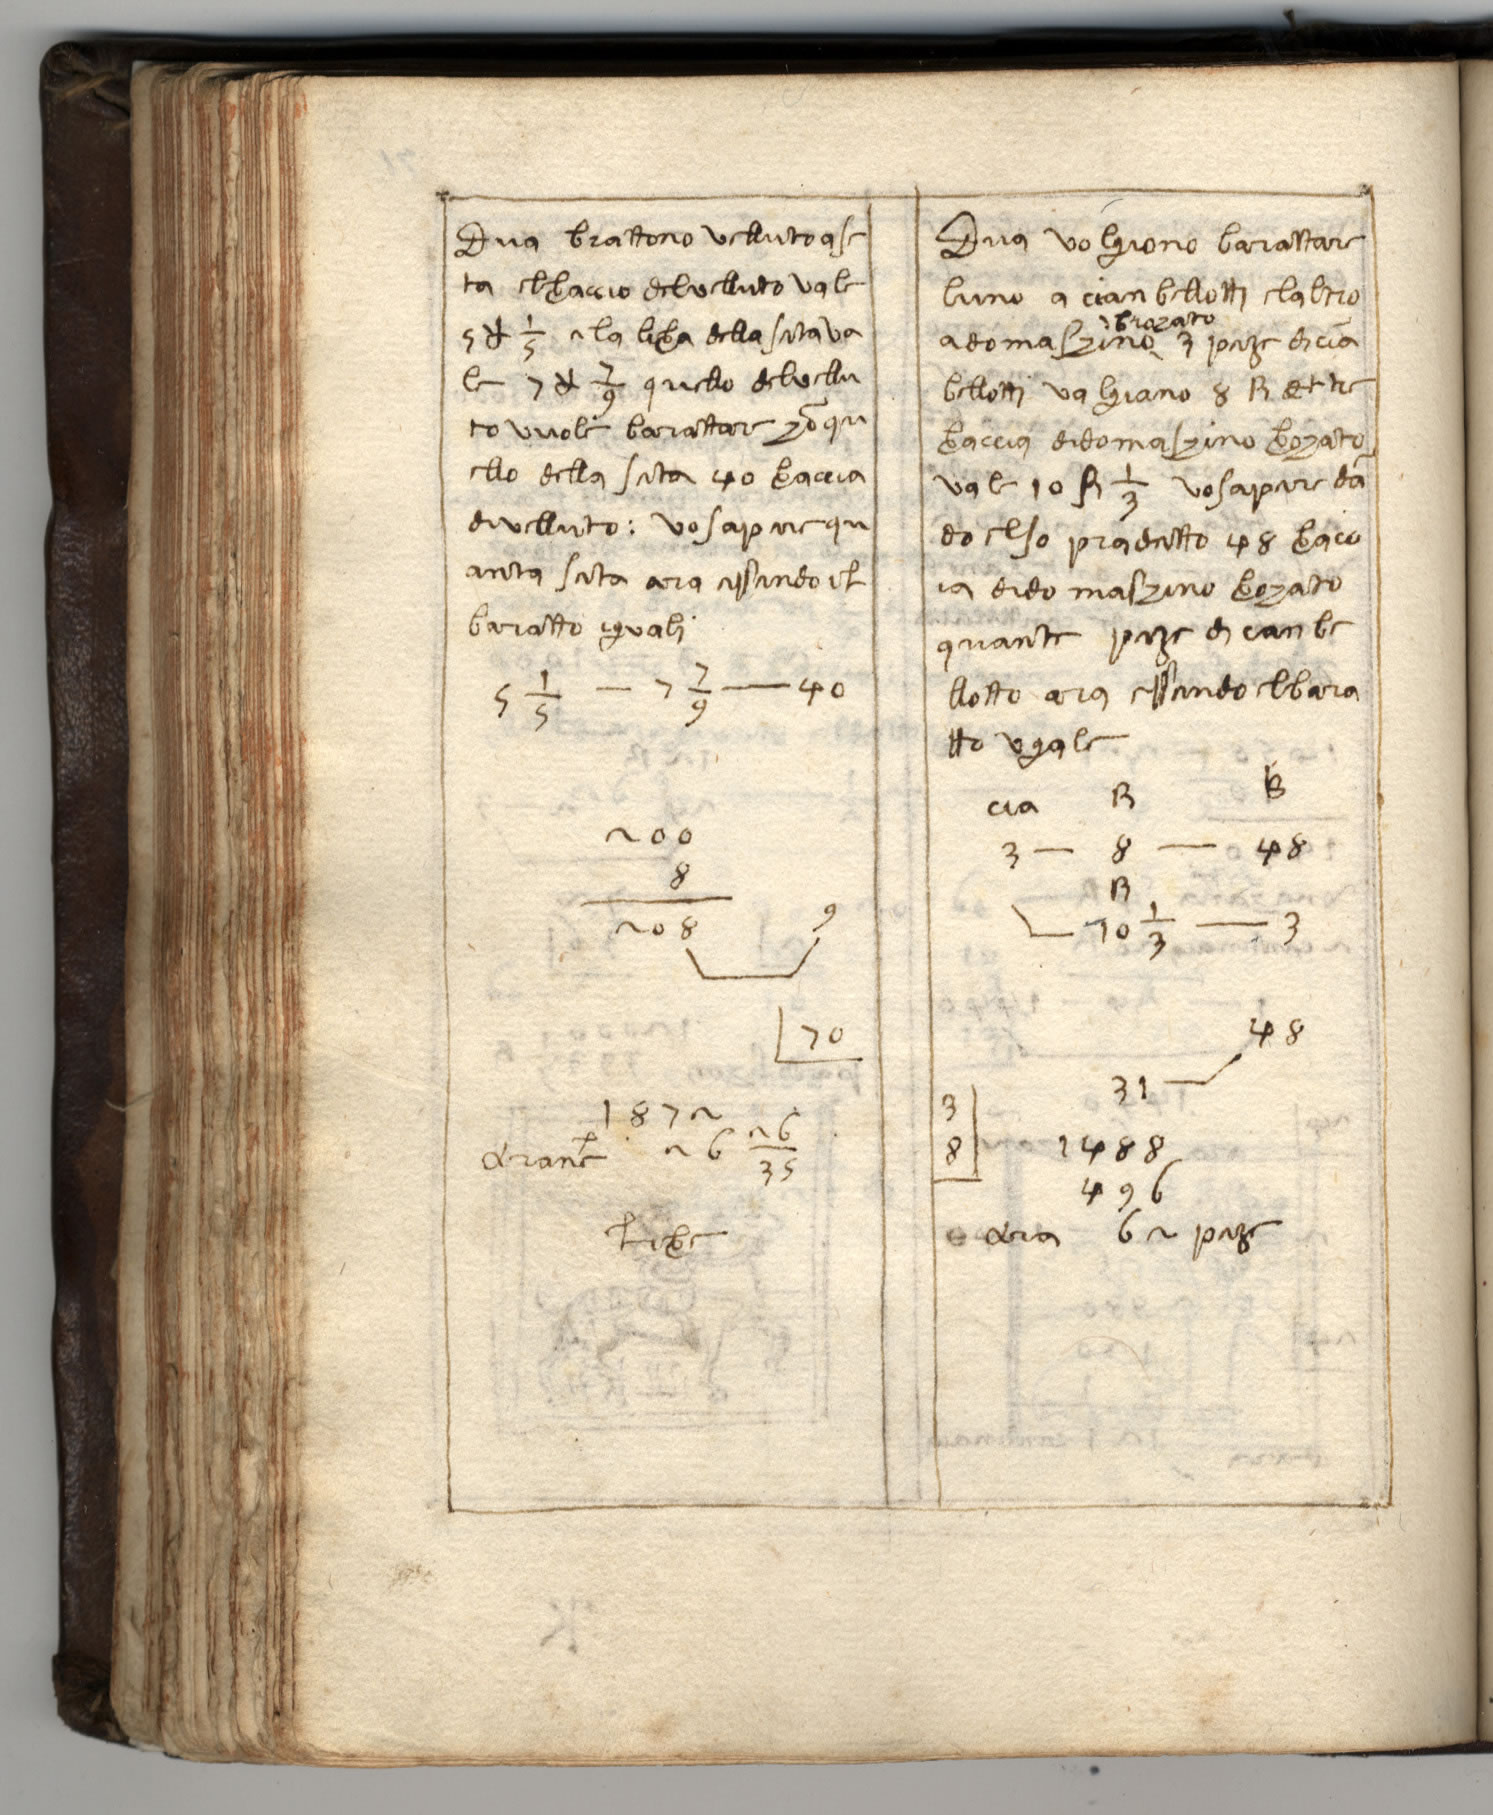 Dua brattono velluto a se
ta el braccio del velluto vale
5 ∀ 1/5 e la libra della seta va
le 7 ∀ 7/9 quello del vellu
to vuole barattare 9õ qu
ello della seta 40 braccia
di velluto: vo sapere qu
anta seta ara essendo il
baratto iguali
5 1/5 — 7 7/9 — 40
200
8
208 9
70
1872
Arane 26 26/35
libre
Dua volgiono barattare
luno a cianbellotti e laltro
brozato
a domaszino 3 peze di cia
bellotti valgiano 8 R et tre
braccia di domaszino brozato
vale 10 R 1/3 vo sapere dā
do el so pradetto 48 bracc
ia di domaszino brozato
quante peze di cianbe
llotto ara essendo el bara
tto ugale
cia R B
3 — 8 — 48
R
10 1/3 — 3
48
31
3
8 1488
496
Ara 62 peze